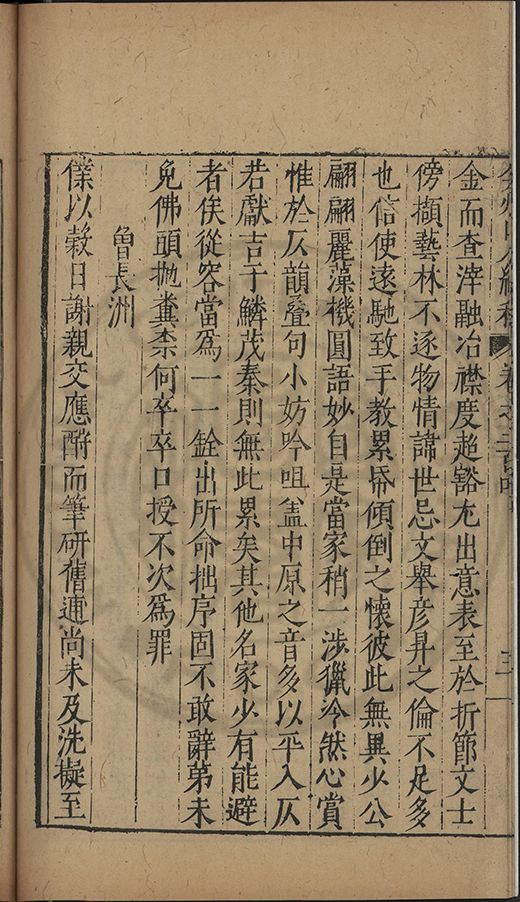 金而查滓融冶襟度超豁尤出意表至於折節文士
傍擷藝林不逐物情諱世忌文舉彦昇之倫不足多
也信使遠馳致手教累帋傾倒之懷彼此無異少公
翩翩麗藻機圓語妙自是當家稍一涉獵泠然心賞
惟於仄韻疊句小妨吟咀盖中原之音多以平入仄
若獻吉于鱗茂秦則無此累矣其他名家少有能避
者俟從容當爲一一銓出所命拙序固不敢辭第未
免佛頭抛糞柰何卒卒口授不次爲罪
魯長洲
僕以穀日謝親交應酧而筆研舊逋尚未及洗擬至